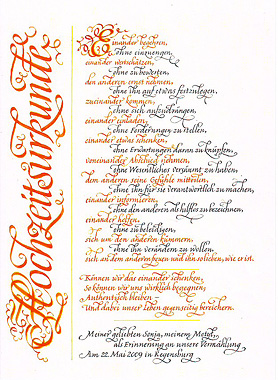 Hochzeitsurkunde
Einander begehren,
ohne einzuengen,
einander wertschätzen,
ohne zu bewerten,
den anderen ernst nehmen,
ohne ihn auf etwas festzulegen,
zueinander kommen,
ohne sich aufzudrängen,
einander einladen,
ohne Forderungen zu stellen,
einander etwas schenken,
ohne Erwartungen daran zu knüpfen,
voneinander Abschied nehmen,
ohne Wesentliches versäumt zu haben,
dem anderen seine Gefühle mitteilen,
ohne ihn für sie verantwortlich zu machen,
einander informieren,
ohne den anderen als hilflos zu bezeichnen,
einander helfen,
ohne zu beleidigen,
sich um den anderen kümmern,
ohne ihn verändern zu wollen,
sich an dem anderen freuen und ihn so lieben, wie er ist.
Können wir das einander schenken,
So können wir uns wirklich begegnen,
Authentisch bleiben
Und dabei unser Leben gegenseitig bereichern.
Meiner geliebten Sonja, meinem
als Erinnerung an unsere Vermählung
Am 22. Mai 2009 in Regensburg